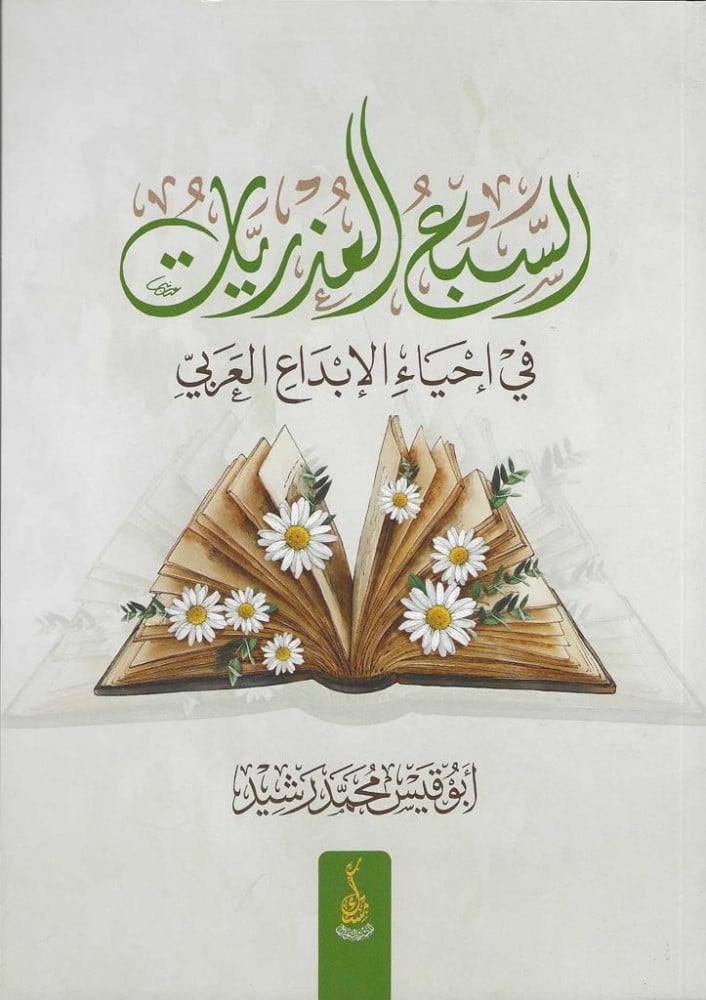 السَّبْعُ العُذْرِيَّاتُ
فِي إِحْيَاءِ الإِبْدَاعِ العَرَبِيِّ
أَبُو قَيْس مُحَمَّد رَشِيْد